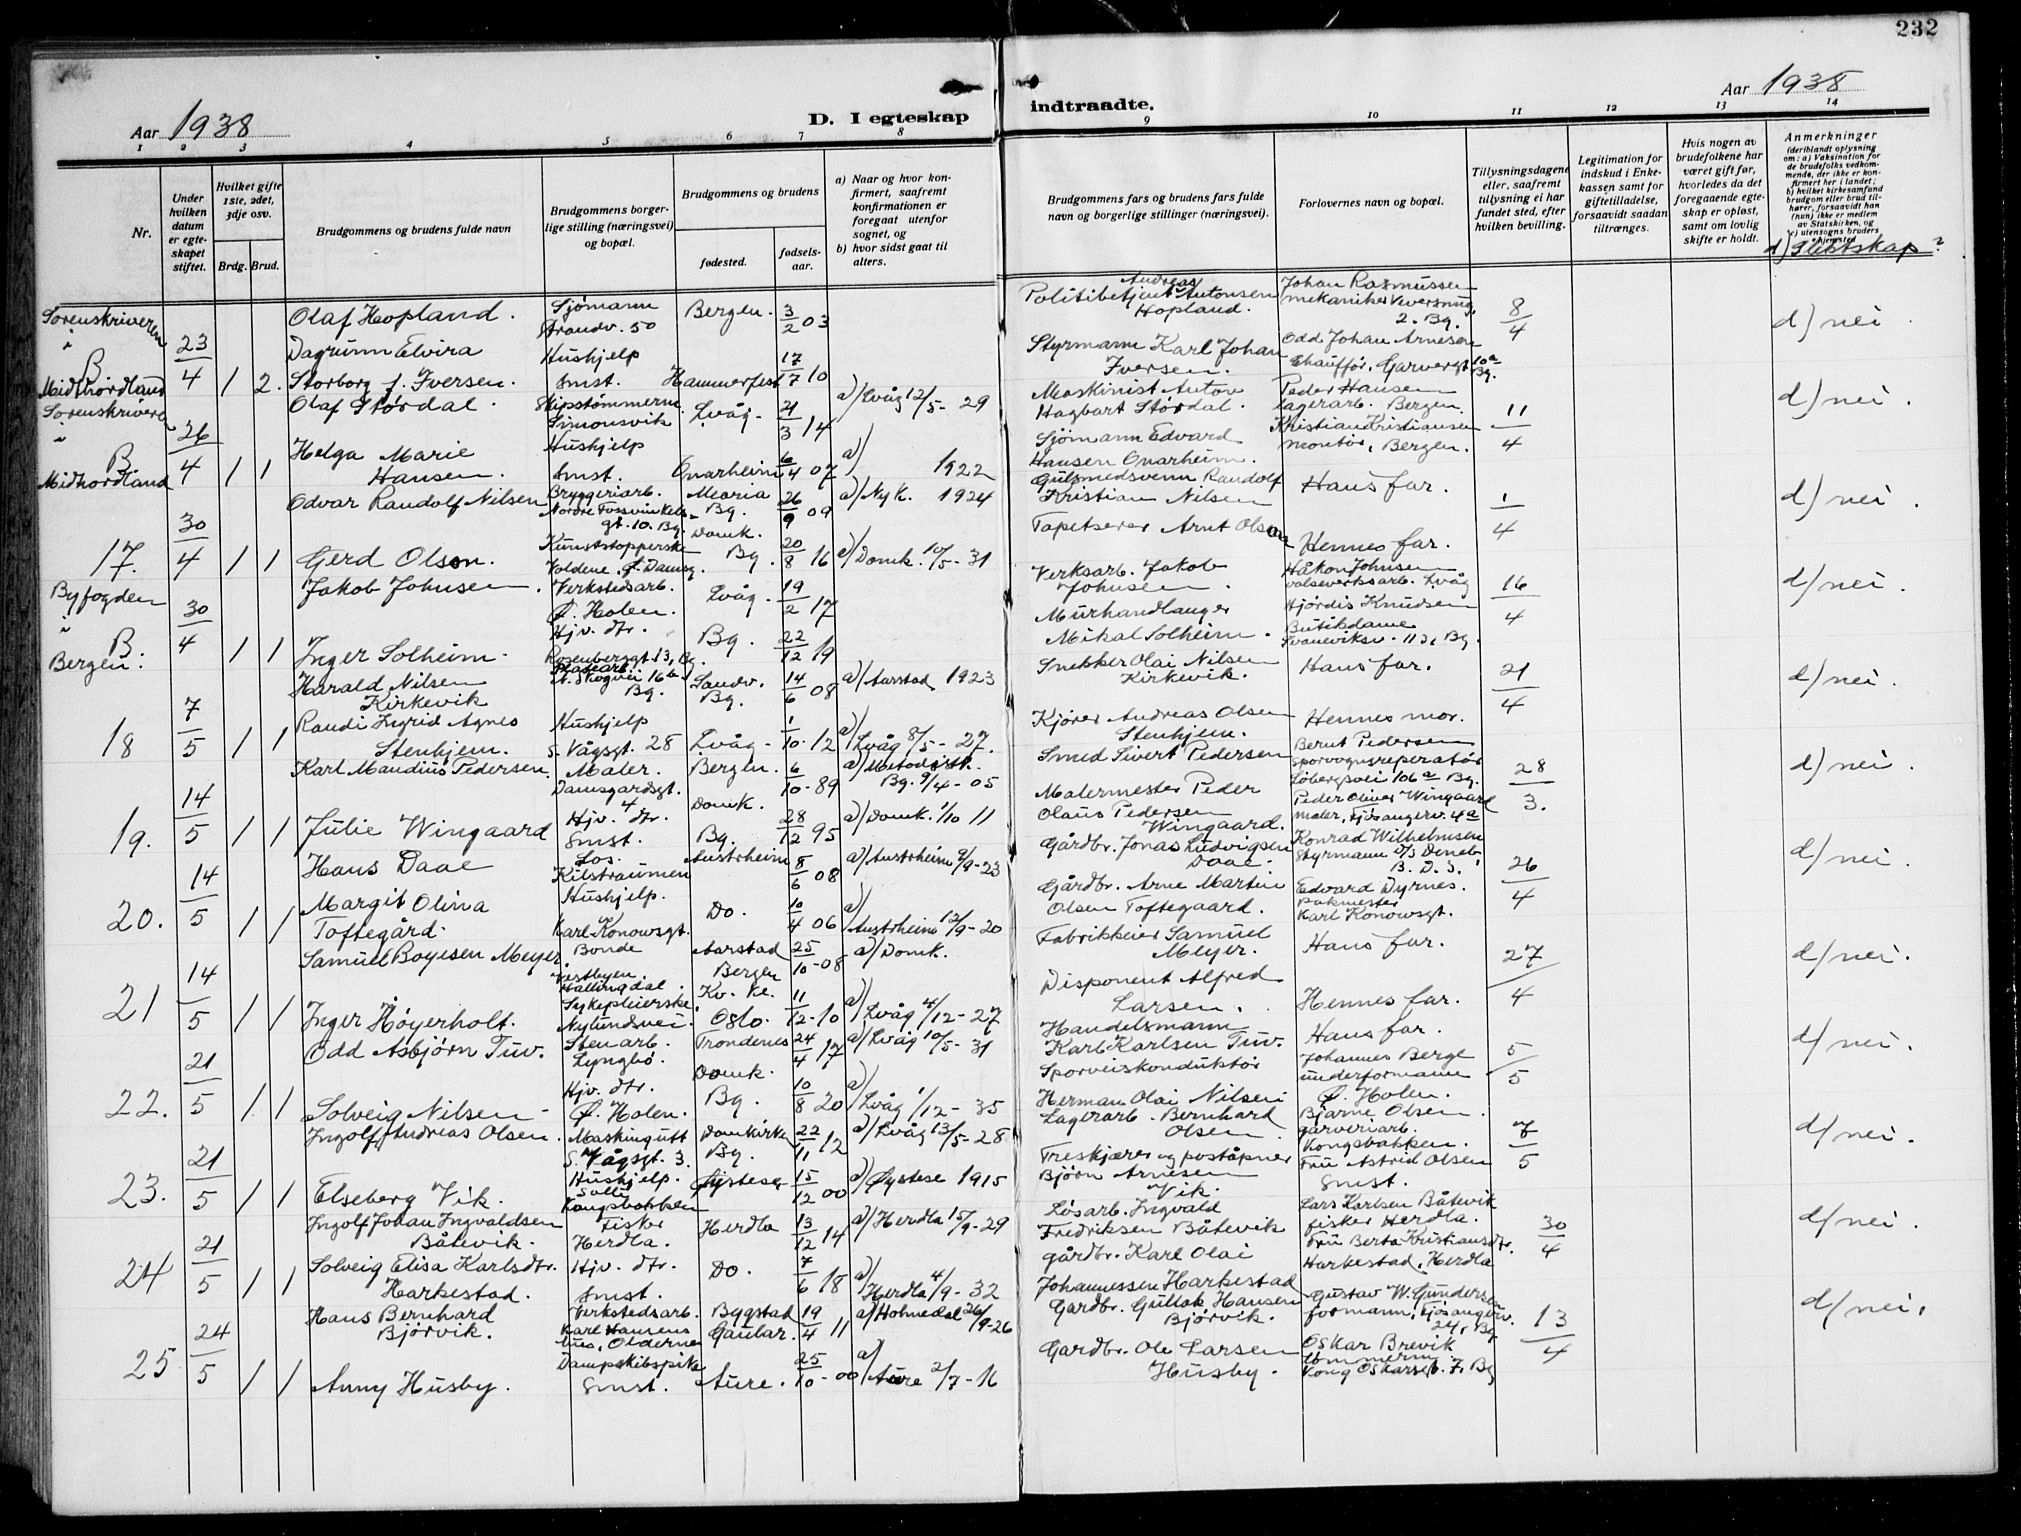 232
Aar 1938
D. I egteskap
indtraadte.
Aar 1938
1 2 3 4 5 6 7 8 9 10 11 12 13 14
Nr.
Under hvilken datum er egteskapet stiftet.
Hvilket gifte 1ste, 2det, 3dje osv.
Brdg. Brud.
Brudgommens og brudens fulde navn
Brudgommens borgerlige stilling (næringsvei) og bopæl.
Brudgommens og brudens
fødested.
fødselsaar.
a) Naar og hvor konfirmert, saafremt konfirmationen er foregaat utenfor sognet, og
b) hvor sidst gaat til alters.
Brudgommens fars og brudens fars fulde navn og borgerlige stillinger (næringsvei).
Forlovernes navn og bopæl.
Tillysningsdagene eller, saafremt tillysning ei har fundet sted, efter hvilken bevilling.
Legitimation for indskud i Enkekassen samt for giftetilladelse, forsaavidt saadan tiltrænges.
Hvis nogen av brudefolkene har været gift før, hvorledes da det foregaaende egteskap er opløst, samt om lovlig skifte er holdt.
Anmerkninger
(deriblandt oplysning om: a) Vaksination for de brudefolks vedkommende, der ikke er konfirmert her i landet; b) hvilket kirkesamfund brudgom eller brud tilhører, forsaavidt han (hun) ikke er medlem av Statskirken, og c) utensogns bruders hjemsted
d) Slektskap?
Sorenskriveren i B Midthordland 23/4 1 2.
Olaf Hopland. Sjømann Strandv. 50 Bergen. 3/2 03
Politibetjent Andreas Antonsen Hopland. Johan Rasmussen mekaniker 2. Bg. 8/4 d) nei.
Dagrunn Elvira Storborg f. Iversen. Hushjelp Smst. Hammerfest 17/7 10
Styrmann Karl Johan Iversen. Odd Johan Arnesen Chauffør, Garvergt 10a Bg.
Sorenskriveren i B Midhordland 26/4 1 1
Olaf Størdal. Skipstømmerm. Simonsvik Lvåg. 21/3 14 a) Lvåg 12/5-29
Maskinist Anton Hagbart Størdal. Peder Hansen lagerarb. Bergen 11/4 d) nei.
Helga Marie Hansen. Hushjelp Smst. Onarheim 6/4 07 a) 1922
Sjømann Edvard Hansen Onarheim. Kristian Kristiansen montør, Bergen.
17. 30/4 1 1
Odvar Randolf Nilsen Bryggeriarb. Nordre Fossvinkelsgt. 10. Bg. Maria Bg. 26/9 09 a) Nyk. 1924
Gulsmedsvenn Randolf Kristian Nilsen Hans far. 1/4 d) nei.
Gerd Olson. Kunststopperske Voldene, Ø. Damsg. Domk. Bg. 20/8 16 a) Domk. 10/5-31
Tapetserer Arnt Olson Hennes far.
Byfogden i B. Bergen. 30/4 1 1
Jakob Johnsen Verkstedsarb. Ø. Holen. Lvåg. 19/2 17
Verksarb. Jakob Johnsen Håkon Johnsen valseverksarb. Lvåg 16/4 d) nei.
Inger Solheim. Hjv. dtr. Rosenbergsgt. 13, Bg. Bg. 22/12 19
Murhandlanger Mikal Solheim. Hjørdis Knudsen Butikdame Svaneviksv. 113, Bg.
18 7/5 1 1
Harald Nilsen Kirkevik 16b Bg. Sandv. Bg. 14/6 08 a) Aarstad 1923
Snekker Olai Nilsen Kirkevik. Hans far. 21/4 d) nei.
Randi Ingrid Agnes Stenhjem. Hushjelp S. Vågsgt. 28 Lvåg. 1/10-12 a) Lvåg 8/5-27.
Kjører Andreas Olsen Stenhjem. Hennes mor.
19. 14/5 1 1
Karl Mandius Pedersen. Maler. Damsgardsgt. 4 Bergen. 6/10-89 a) Metodistk. Bg. 9/4-05
Smed Sivert Pedersen Bernt Pedersen sporvognsreperatør Løbergsvei 106a Bg. 28/3. d) nei.
Julie Wingaard Hjv. dtr. Smst. Domk. Bg. 28/12 95 a) Domk. 1/10 11
Malermester Peder Olaus Pedersen Wingaard. Peder Oliver Wingaard maler, Fjøsangerv. 4a
20. 14/5 1 1
Hans Daae Los. Kilstraumen Austrheim 8/6 08 a) Austrheim 9/9-23
Gårdbr. Jonas Ludvigsen Daae. Konrad Wilhelmsen Styrmann D/S Deneb B. D. S. 26/4 d) nei.
Margit Olina Toftegård. Hushjelp. Karl Konowsgt. Do. 10/4 06 a) Austrheim 12/9-20
Gårdbr. Arne Martin Olsen Toftegaard. Edvard Dyrnes. pakmester Karl Konowsgt.
21 14/5 1 1
Samuel Boyesen Meyer Bonde Vestbyen. Hallingdal. Aarstad Bergen 25/10-08 a) Domk.
Fabrikkeier Samuel Meyer. Hans far. 27/4 d) nei.
Inger Høyerholt. Sykepleierske Nylundsvei. Kv. ke. Oslo. 11/12-10 a) Lvåg 4/12-27
Disponent Alfred Larsen. Hennes far.
22. 21/5 1 1
Odd Asbjørn Tuv. Stenarb. Lyngbø. Trondenes 24/4 17 a) Lvåg 10/5-31
Handelsmann Karl Karlsen Tuv. Hans far. 5/5 d) nei.
Solveig Nilsen Hjv. dtr. Ø. Holen. Domk. Bg. 10/8 20 a) Lvåg 1/12-35
Sporveiskonduktør Herman Olai Nilsen Johannes Berge underformann Ø. Holen.
23. 21/5 1 1
Ingolf Andreas Olsen. Maskingutt S. Vågsgt. 3. Domkirke Bg. 22/11 12 a) Lvåg 13/5-28
Lagerarb. Bernhard Olsen. Bjarne Olsen garveriarb. Kongsbakken. 7/5 d) nei.
Elseberg Vik. Hushjelp. Kongsbakken Øystese 15/12 00 a) Øystese 1915
Treskjærer og poståpner Bjørn Arnesen Vik. Fru Astrid Olsen Smst.
24 21/5 1 1
Ingolf Johan Ingvaldsen Båtevik. Fisker Herdla. Herdla 13/12 14 a) Herdla 15/9-29
Løsarb. Ingvald Fredriksen Båtevik Lars Karlsen Båtevik fisker Herdla. 30/4 d) nei.
Solveig Elisa Karlsdtr. Harkestad. Hjv. dtr. Smst. Do. 7/6 18 a) Herdla 4/9-32
gårdbr. Karl Olai Johannessen Harkestad Fru Berta Kristiansdtr. Harkestad, Herdla
25 24/5 1 1
Hans Bernhard Bjørvik. Verkstedsarb. Karl Hansens hus, Oldernes Bygstad Gaular. 19/4 11 a) Holmedal 26/9-26
Gardbr. Gullak Hansen Bjørvik. Gustav W. Gundersen formann, Fjøsangerv. 24, Bg 13/4 d) nei.
Anny Husby. Dampskibspike Smst. Aure. 25/10-00 a) Aure 2/7-16
Gardbr. Ole Larsen Husby. Oskar Brevik tømmerm Kong Oskarsgt. 7. Bg